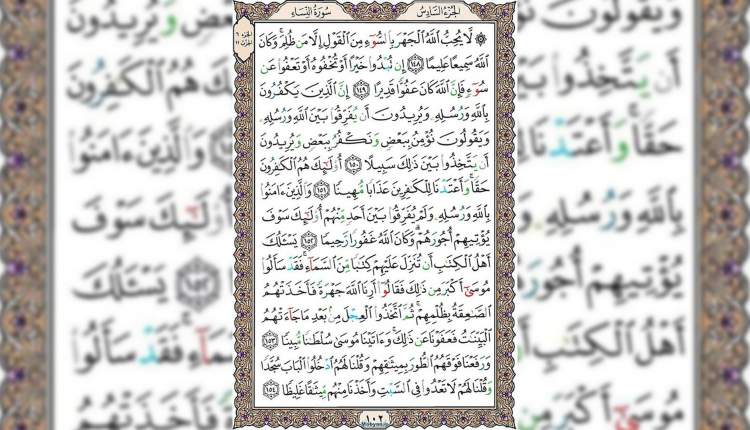 الجزء السادس
سورة النساء
الجزء ٦
الحزب ١١
۞ لَا يُحِبُّ اللَّهُ الْجَهْرَ بِالسُّوءِ مِنَ الْقَوْلِ إِلَّا مَن ظُلِمَ وَكَانَ
اللَّهُ سَمِيعًا عَلِيمًا ١٤٨ إِن تُبْدُوا خَيْرًا أَوْ تُخْفُوهُ أَوْ تَعْفُوا عَن
سُوءٍ فَإِنَّ اللَّهَ كَانَ عَفُوًّا قَدِيرًا ١٤٩ إِنَّ الَّذِينَ يَكْفُرُونَ
بِاللَّهِ وَرُسُلِهِ وَيُرِيدُونَ أَن يُفَرِّقُوا بَيْنَ اللَّهِ وَرُسُلِهِ
وَيَقُولُونَ نُؤْمِنُ بِبَعْضٍ وَنَكْفُرُ بِبَعْضٍ وَيُرِيدُونَ
أَن يَتَّخِذُوا بَيْنَ ذَٰلِكَ سَبِيلًا ١٥٠ أُولَٰئِكَ هُمُ الْكَافِرُونَ
حَقًّا وَأَعْتَدْنَا لِلْكَافِرِينَ عَذَابًا مُّهِينًا ١٥١ وَالَّذِينَ آمَنُوا
بِاللَّهِ وَرُسُلِهِ وَلَمْ يُفَرِّقُوا بَيْنَ أَحَدٍ مِّنْهُمْ أُولَٰئِكَ سَوْفَ
يُؤْتِيهِمْ أُجُورَهُمْ وَكَانَ اللَّهُ غَفُورًا رَّحِيمًا ١٥٢ يَسْأَلُكَ
أَهْلُ الْكِتَابِ أَن تُنَزِّلَ عَلَيْهِمْ كِتَابًا مِّنَ السَّمَاءِ فَقَدْ سَأَلُوا
مُوسَىٰ أَكْبَرَ مِن ذَٰلِكَ فَقَالُوا أَرِنَا اللَّهَ جَهْرَةً فَأَخَذَتْهُمُ
الصَّاعِقَةُ بِظُلْمِهِمْ ثُمَّ اتَّخَذُوا الْعِجْلَ مِن بَعْدِ مَا جَاءَتْهُمُ
الْبَيِّنَاتُ فَعَفَوْنَا عَن ذَٰلِكَ وَآتَيْنَا مُوسَىٰ سُلْطَانًا مُّبِينًا ١٥٣
وَرَفَعْنَا فَوْقَهُمُ الطُّورَ بِمِيثَاقِهِمْ وَقُلْنَا لَهُمُ ادْخُلُوا الْبَابَ سُجَّدًا
وَقُلْنَا لَهُمْ لَا تَعْدُوا فِي السَّبْتِ وَأَخَذْنَا مِنْهُم مِّيثَاقًا غَلِيظًا ١٥٤
١٠٢